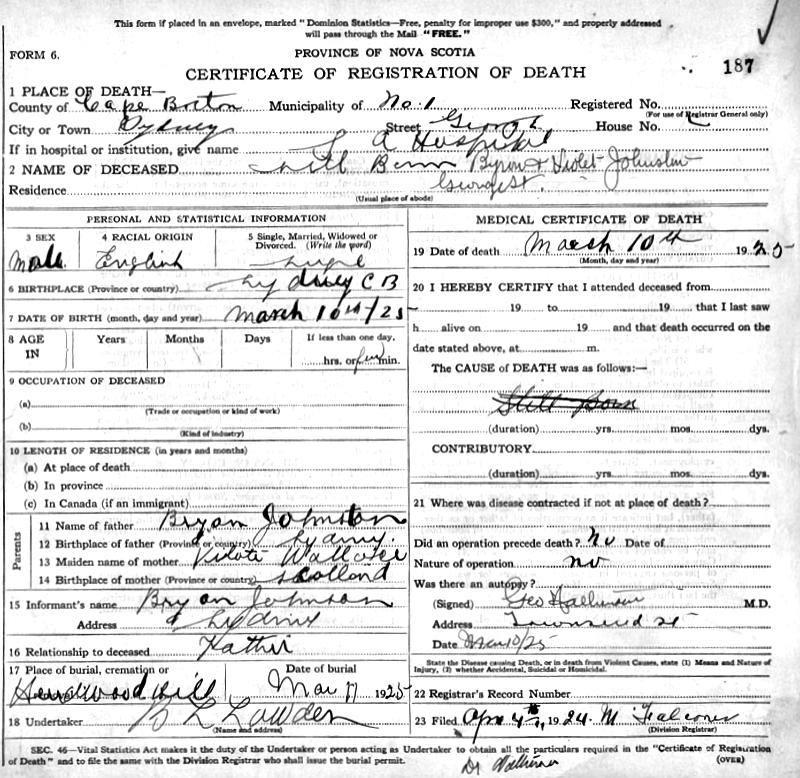 This form if placed in an envelope, marked "Dominion Statistics—Free, penalty for improper use $300," and properly addressed
will pass through the Mail "FREE."
FORM 6.
PROVINCE OF NOVA SCOTIA
187
CERTIFICATE OF REGISTRATION OF DEATH
1 PLACE OF DEATH—
County of Cape Breton Municipality of No. 1 Registered No.
(For use of Registrar General only)
City or Town Sydney Street George House No.
If in hospital or institution, give name Hospital
2 NAME OF DECEASED Still Born Byron & Violet Johnston
Residence George St.
(Usual place of abode)
PERSONAL AND STATISTICAL INFORMATION
3 SEX 4 RACIAL ORIGIN 5 Single, Married, Widowed or Divorced. (Write the word)
Male English Single
6 BIRTHPLACE (Province or country) Sydney C B
7 DATE OF BIRTH (month, day and year) March 10th/25
8 AGE IN Years Months Days If less than one day, hrs. or few min.
9 OCCUPATION OF DECEASED
(a)
(Trade or occupation or kind of work)
(b)
(Kind of industry)
10 LENGTH OF RESIDENCE (in years and months)
(a) At place of death
(b) In province
(c) In Canada (if an immigrant)
Parents
11 Name of father Bryon Johnston
12 Birthplace of father (Province or country) Sydney.
13 Maiden name of mother Wallace
14 Birthplace of mother (Province or country) Scotland
15 Informant's name Bryon Johnston
Address Sydney
16 Relationship to deceased Father
17 Place of burial, cremation or Date of burial
Hardwood Hill Mar 17 1925
18 Undertaker B L Lowden
(Name and address)
MEDICAL CERTIFICATE OF DEATH
19 Date of death March 10th 1925
(Month, day and year)
20 I HEREBY CERTIFY that I attended deceased from
19 to 19 that I last saw
h alive on 19 and that death occurred on the
date stated above, at m.
The CAUSE of DEATH was as follows:—
Still Born
(duration) yrs. mos. dys.
CONTRIBUTORY
(duration) yrs. mos. dys.
21 Where was disease contracted if not at place of death?
Did an operation precede death? No Date of
Nature of operation no
Was there an autopsy?
(Signed) Geo M.D.
Address Townsend St
Date Mar 10/25
State the Disease causing Death, or in death from Violent Causes, state (1) Means and Nature of
Injury, (2) whether Accidental, Suicidal or Homicidal.
22 Registrar's Record Number
23 Filed Apr 4th, 1924 M Falconer
(Division Registrar)
SEC. 46—Vital Statistics Act makes it the duty of the Undertaker or person acting as Undertaker to obtain all the particulars required in the "Certificate of Registration
of Death" and to file the same with the Division Registrar who shall issue the burial permit. (OVER)
Dr